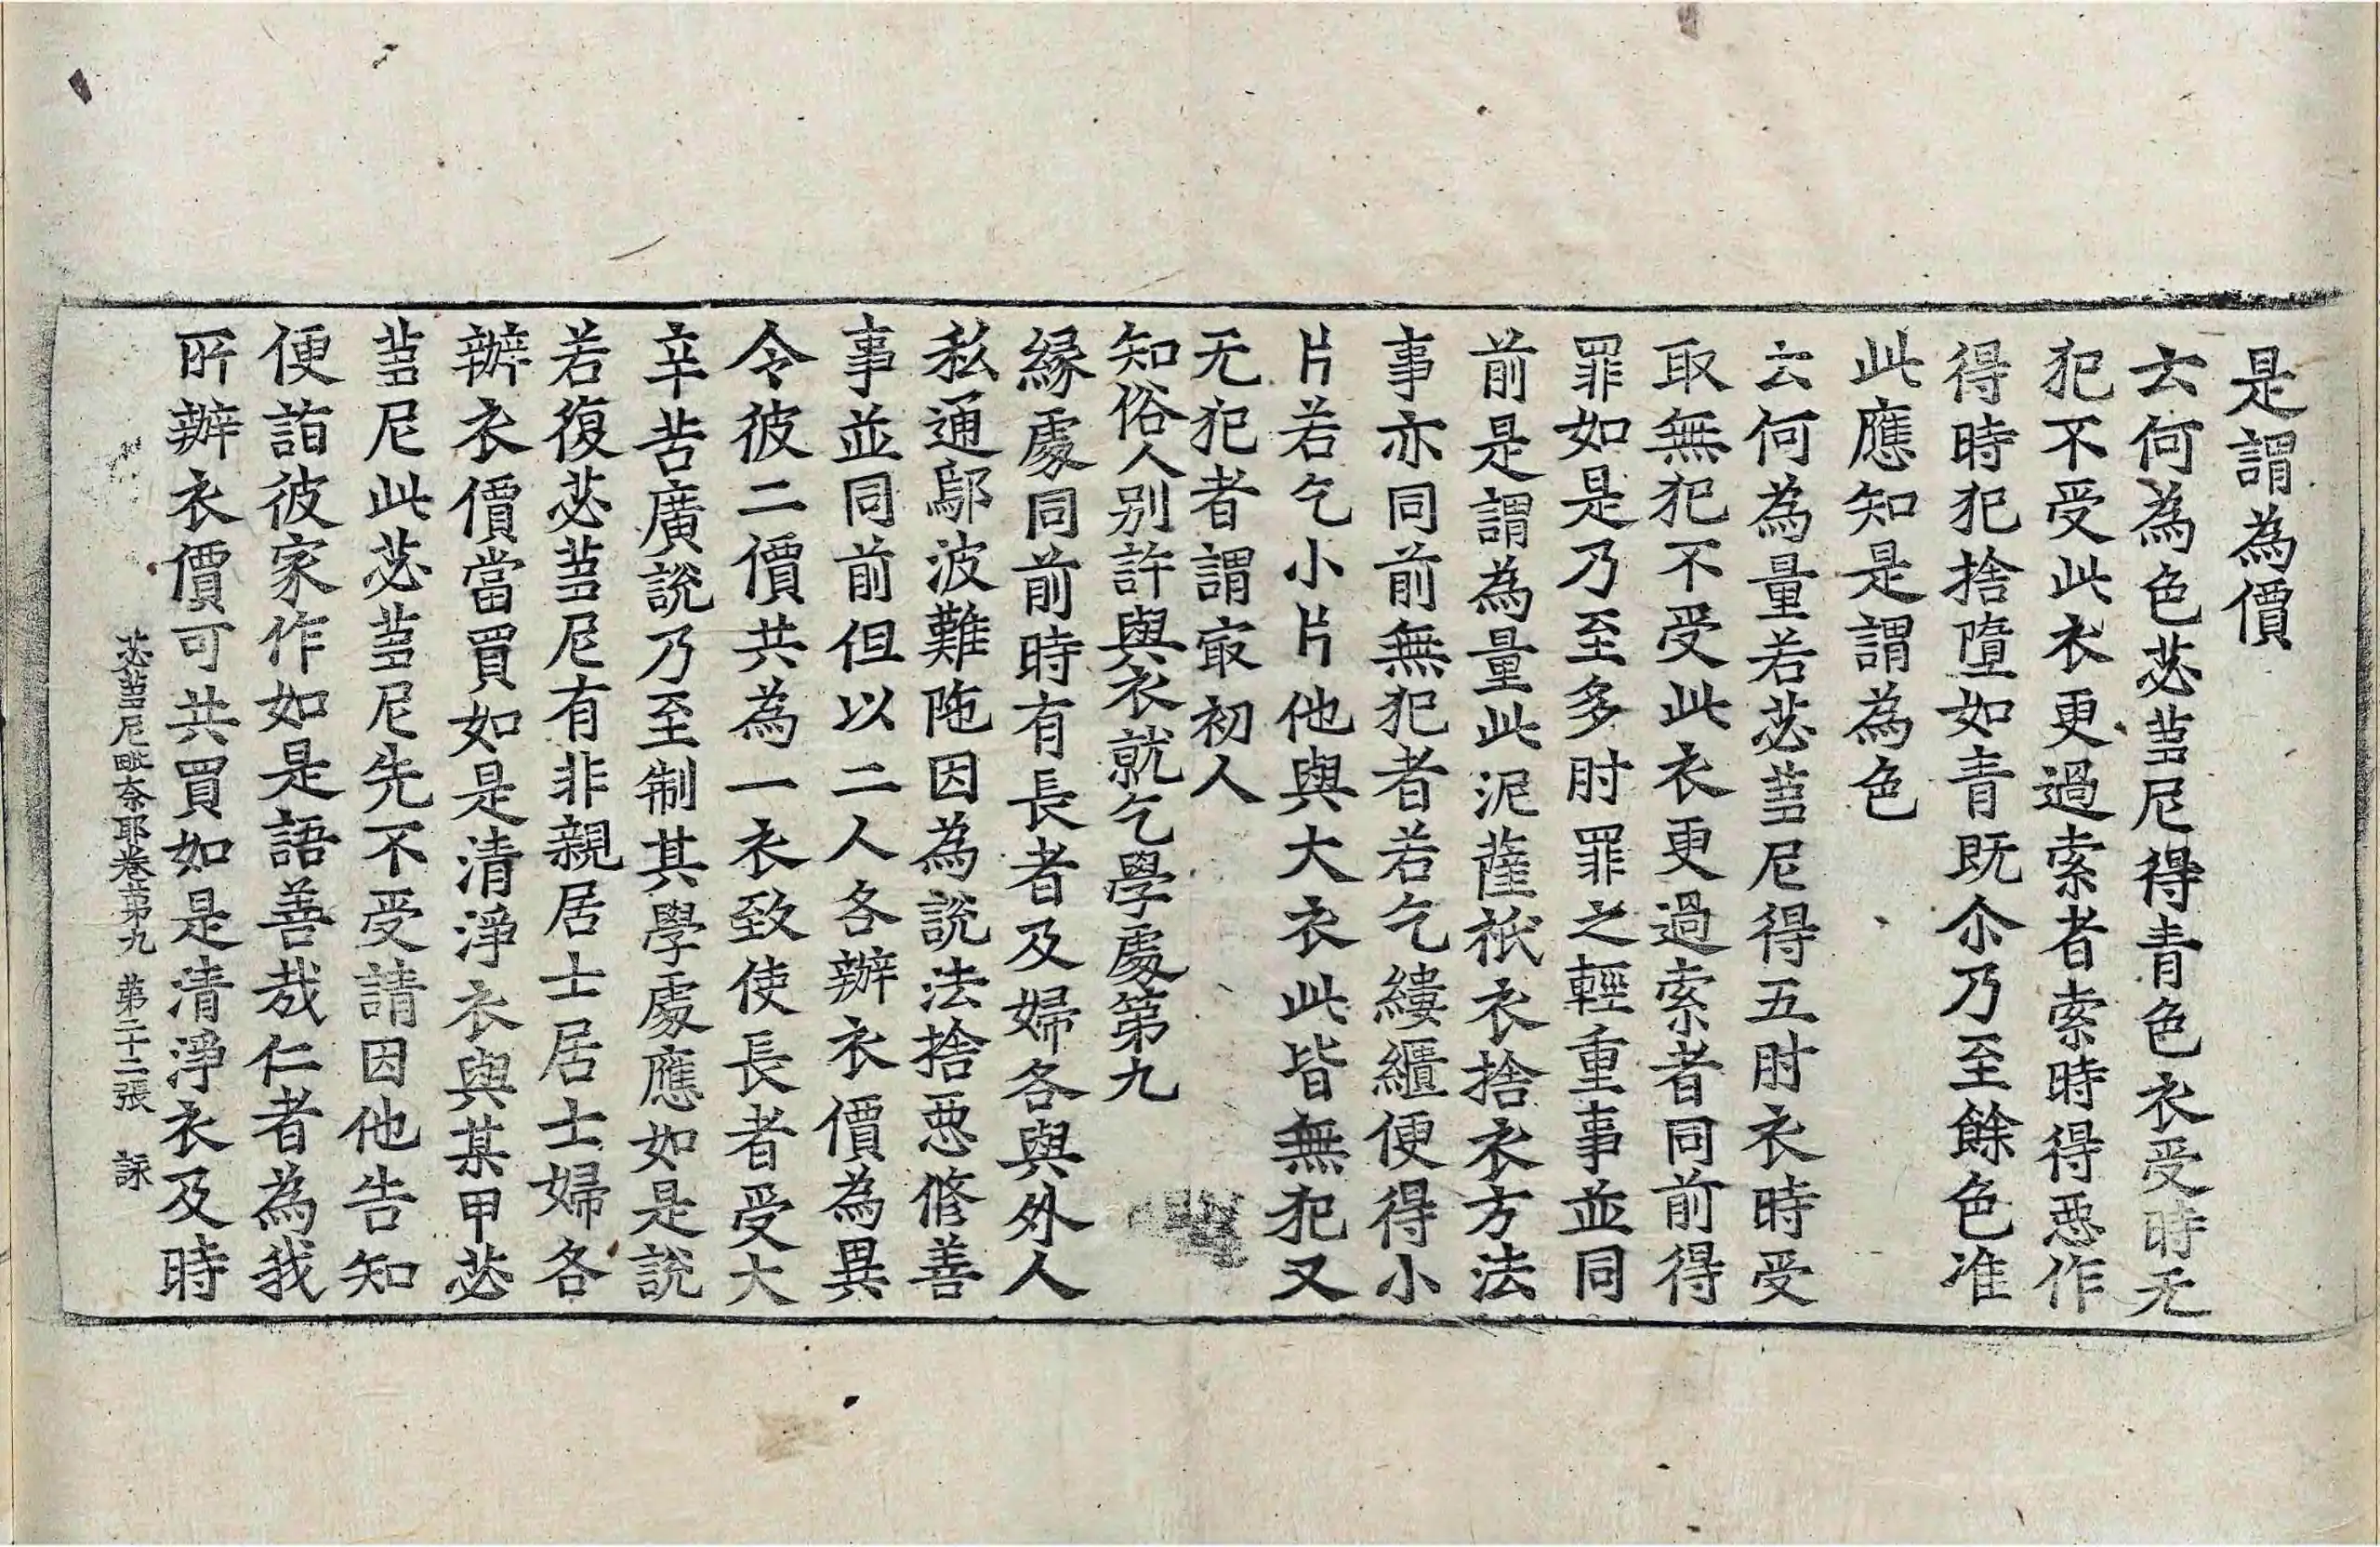 是謂為價
云何為色苾蒭尼得青色衣受時无
犯不受此衣更過索者索時得惡作
得時犯捨墮如青既尒乃至餘色准
此應知是謂為色
云何為量若苾蒭尼得五肘衣時受
取無犯不受此衣更過索者同前得
罪如是乃至多肘罪之輕重事並同
前是謂為量此泥薩祇衣捨衣方法
事亦同前無犯者若乞縷繼便得小
片若乞小片他與大衣此皆無犯又
无犯者謂㝡初人
知俗人別許與衣就乞學處第九
緣處同前時有長者及婦各與外人
私通鄔波難陁因為說法捨惡修善
事並同前但以二人各辦衣價為異
令彼二價共為一衣致使長者受大
辛苦廣說乃至制其學處應如是說
若復苾蒭尼有非親居士居士婦各
辦衣價當買如是清淨衣與某甲苾
蒭尼此苾蒭尼先不受請因他告知
便詣彼家作如是語善哉仁者為我
所辦衣價可共買如是清淨衣及時
苾蒭尼毗奈耶卷第九 第二十二張 詠